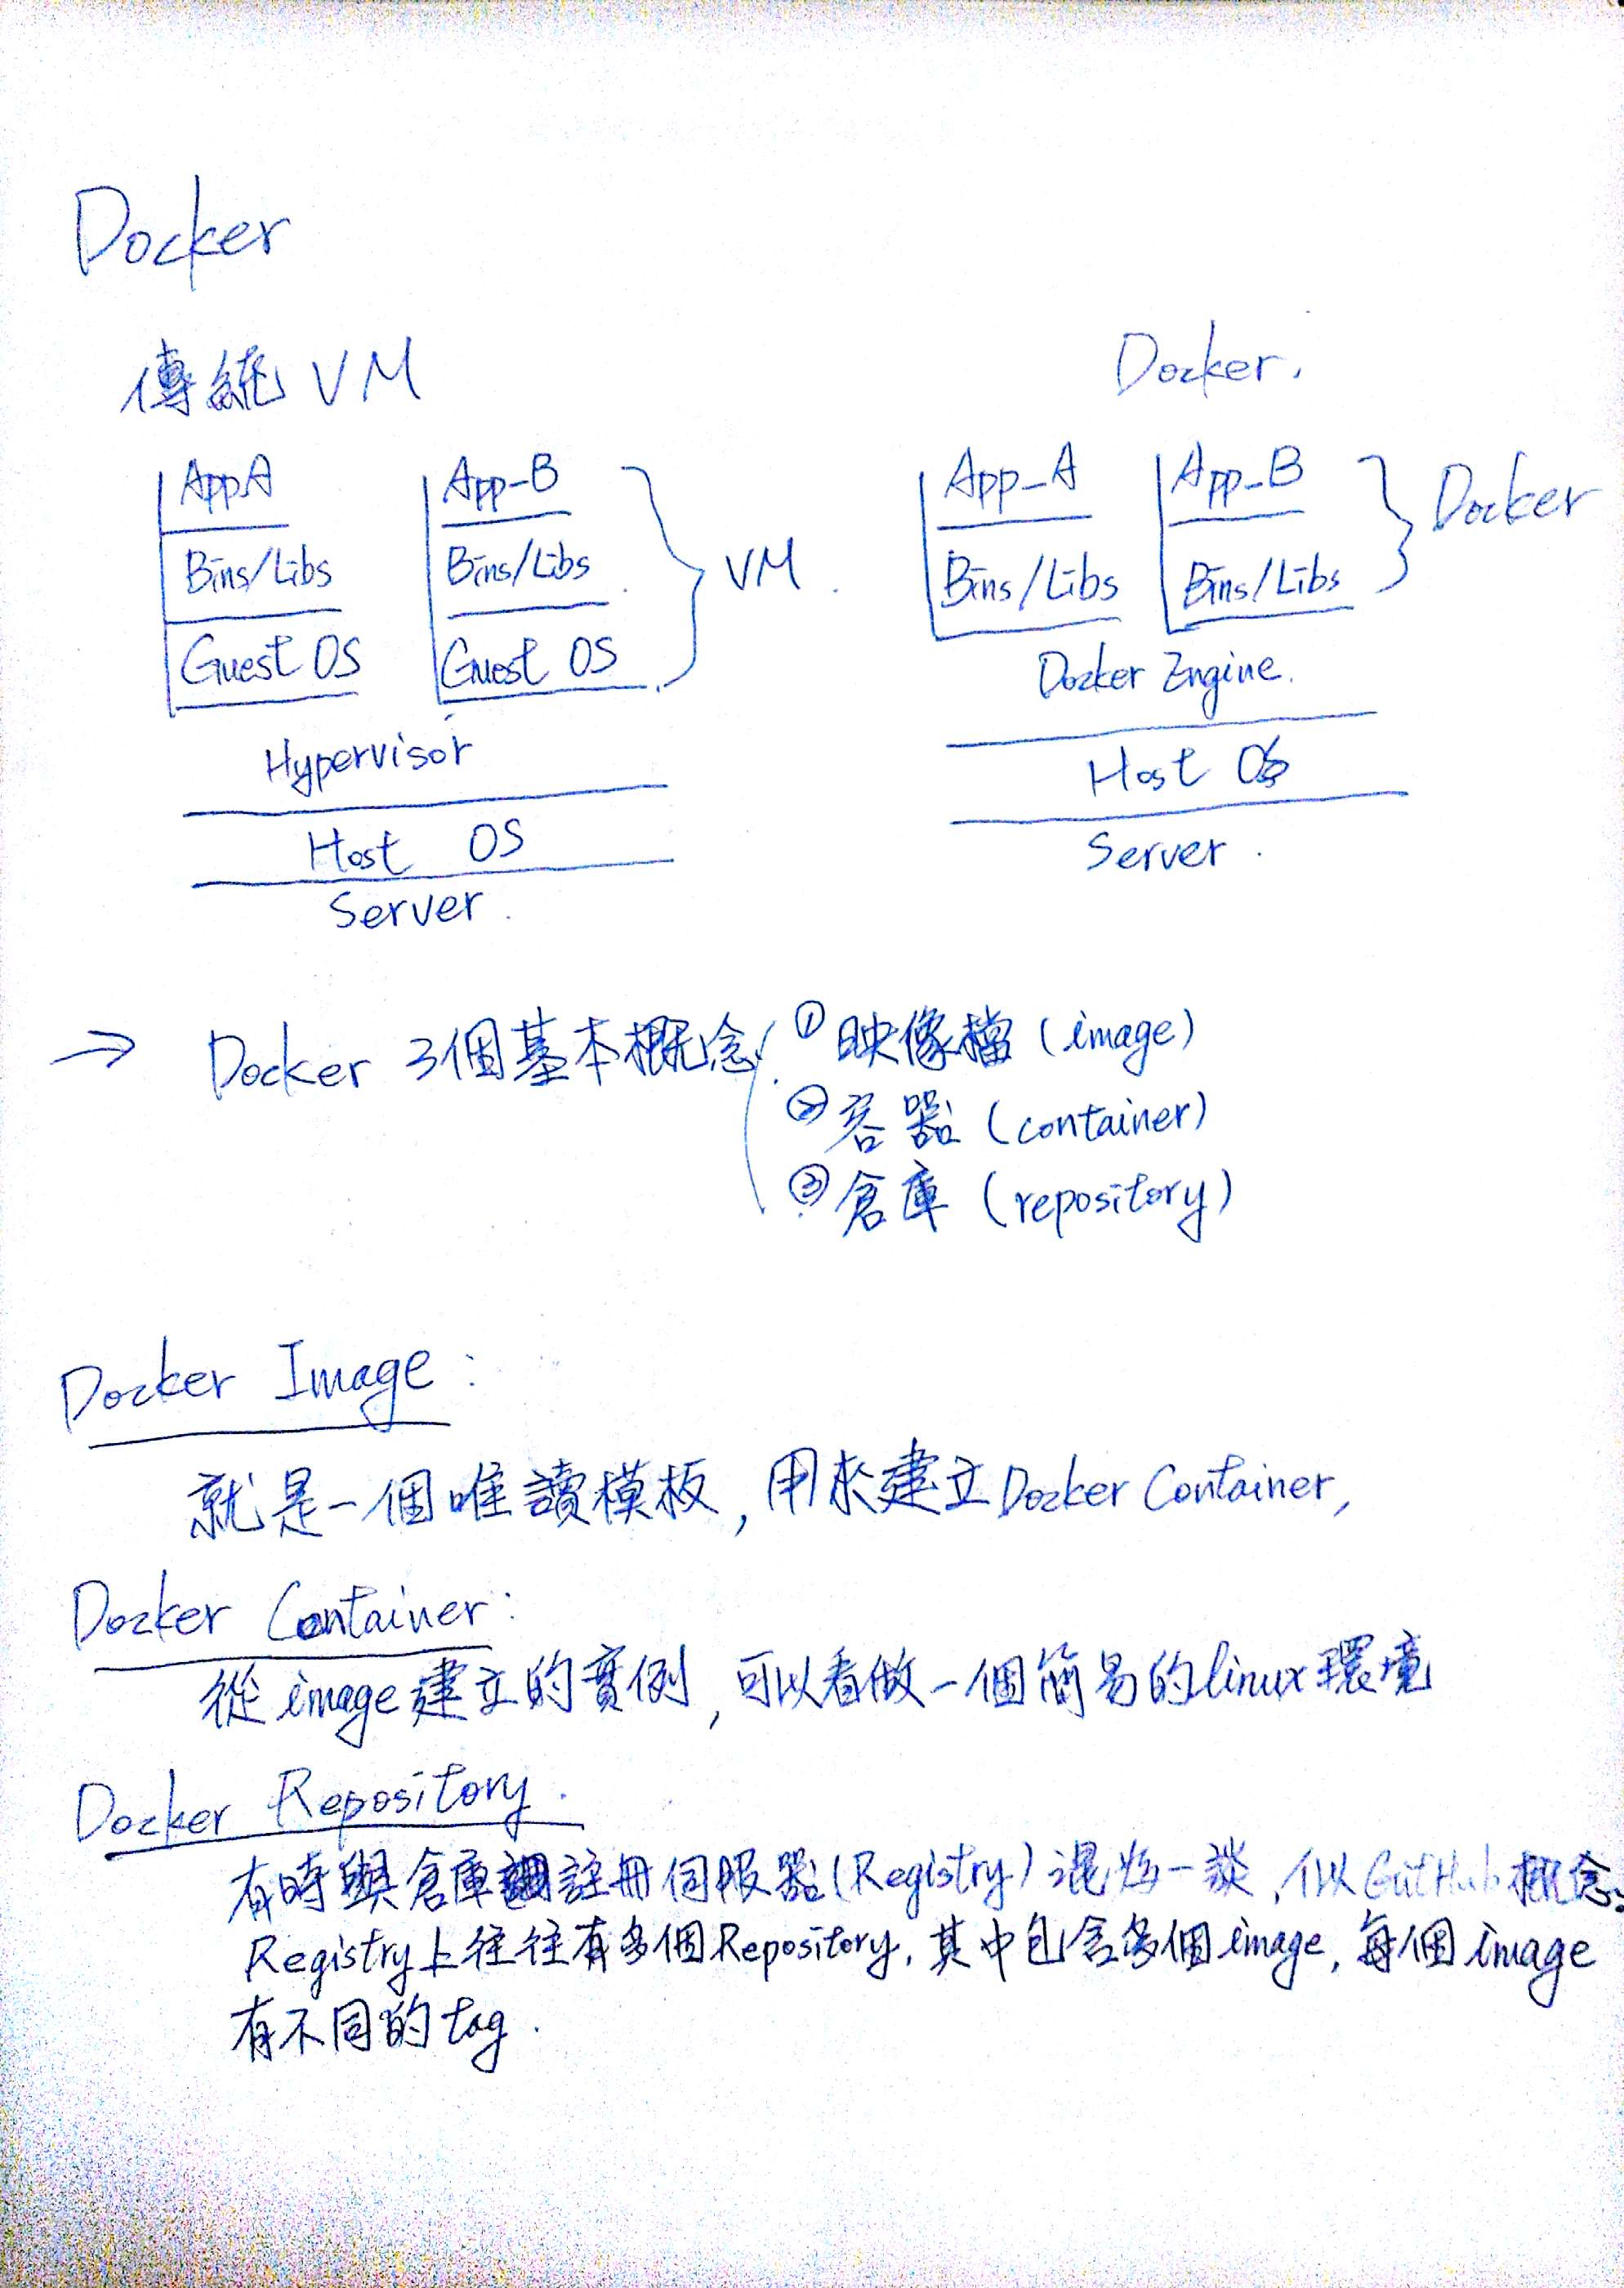 Docker
傳統 VM
Docker.
App A
App_B
Bins/Libs
Bins/Libs
VM
Guest OS
Guest OS
Hypervisor
Host OS
Server.
App_A
App_B
Docker
Bins/Libs
Bins/Libs
Docker Engine.
Host OS
Server.
→ Docker 3個基本概念 ① 映像檔 (image)
② 容器 (container)
③ 倉庫 (repository)
Docker Image:
就是一個唯讀模板, 用來建立Docker Container,
Docker Container:
從image建立的實例, 可以看做一個簡易的linux環境
Docker Repository.
有時與倉庫註冊伺服器(Registry)混為一談, 似GitHub概念.
Registry上往往有多個Repository, 其中包含多個image, 每個image
有不同的tag.